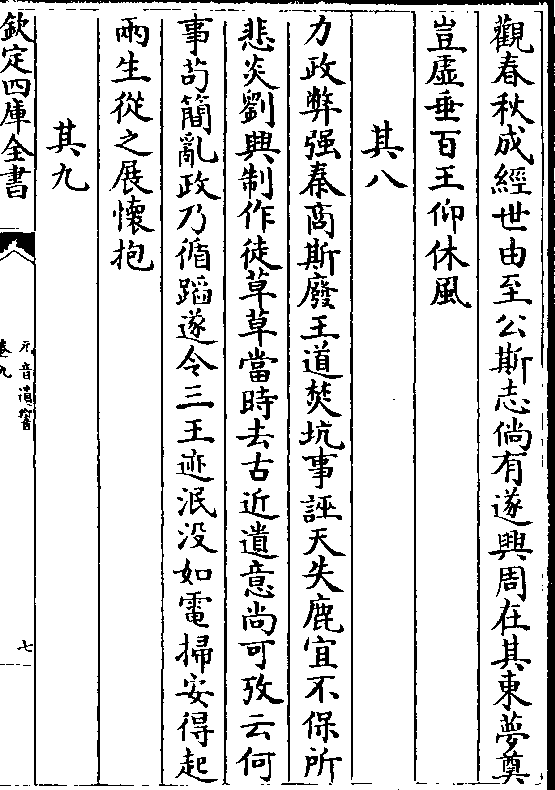 觀春秋成經世由至公斯志倘有遂興周在其東夢奠
豈虛垂百王仰休風
其八
力政弊强秦商斯廢王道焚坑事誣天失鹿宜不保所
悲炎劉興制作徒草草當時去古近遺意尚可攷云何
事茍簡亂政乃循蹈遂令三王迹泯没如電掃安得起
兩生從之展懷抱
其九
欽定四庫全書
元音遺響
卷九
七